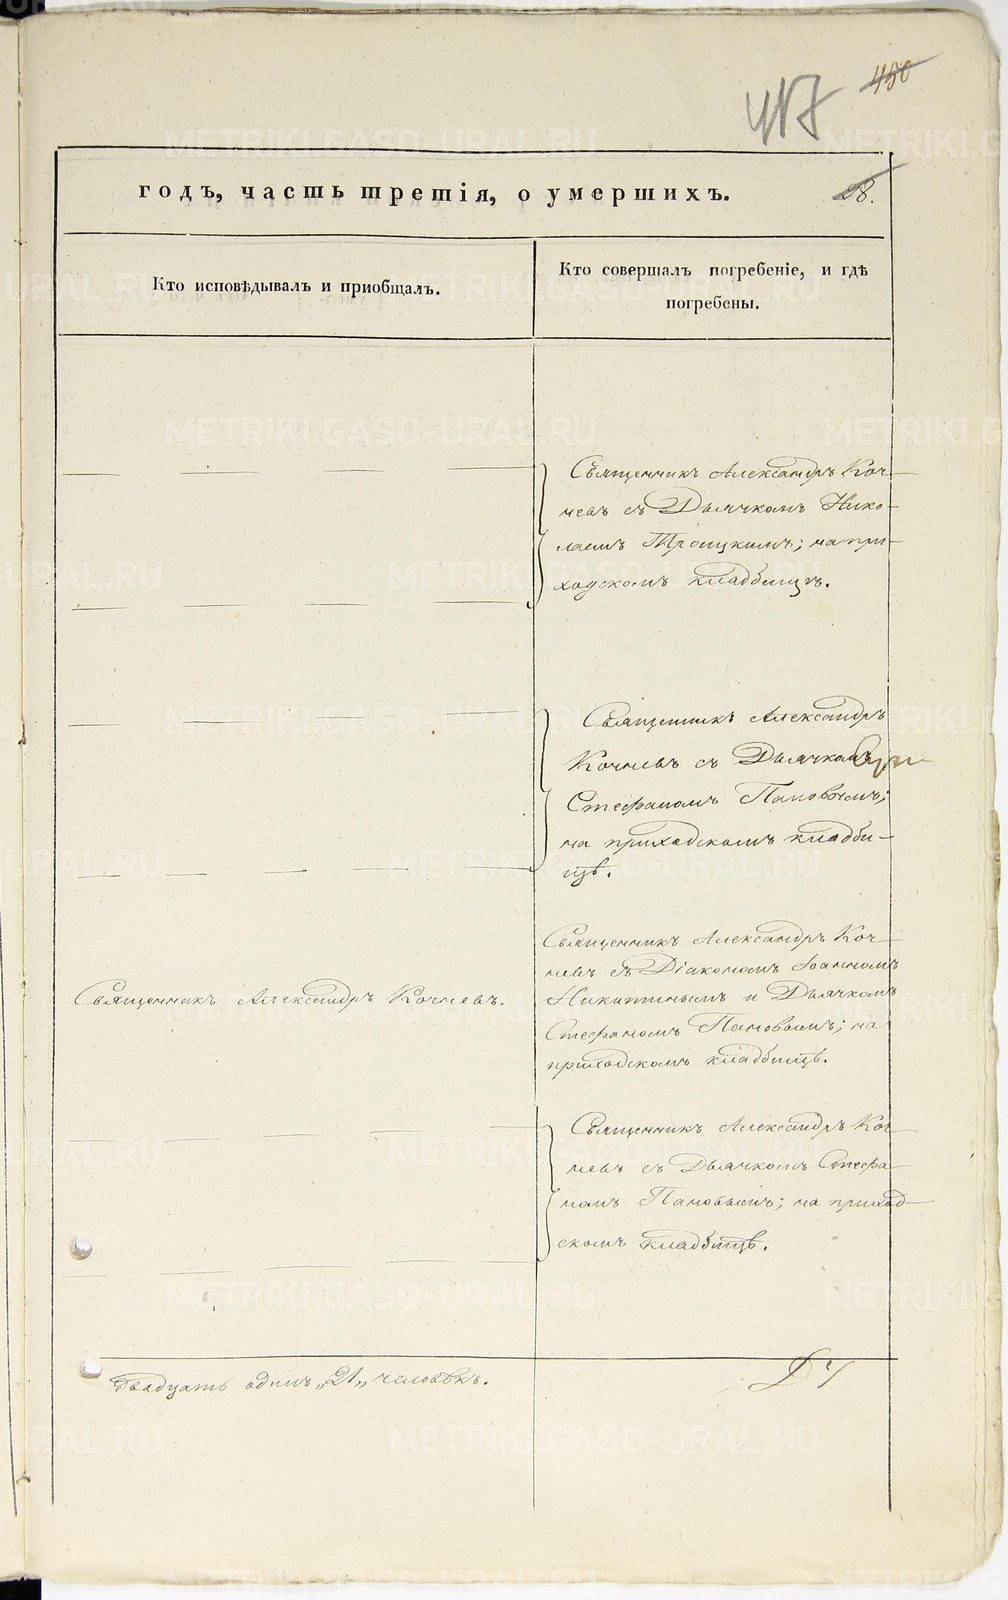 417 450
годъ, часть третія, о умершихъ. 28.
Кто исповѣдывалъ и приобщалъ.
Кто совершалъ погребеніе, и гдѣ
погребены.
Священникъ Александръ Коч-
невъ съ Дьячкомъ Нико-
лаемъ Троицкимъ; на при-
ходскомъ кладбищѣ.
Священникъ Александръ
Кочневъ съ Дьячкомъ
Стефаномъ Пановымъ;
на приходскомъ кладби-
щѣ.
Священникъ Александръ Кочневъ.
Священникъ Александръ Коч-
невъ съ Діакономъ Іоанномъ
Никитинымъ и Дьячкомъ
Стефаномъ Пановымъ; на
приходскомъ кладбищѣ.
Священникъ Александръ Коч-
невъ съ Дьячкомъ Стефа-
номъ Пановымъ; на приход-
скомъ кладбищѣ.
Двадцать одинъ „21„ человѣкъ.
METRIKI.GASO-URAL.RU